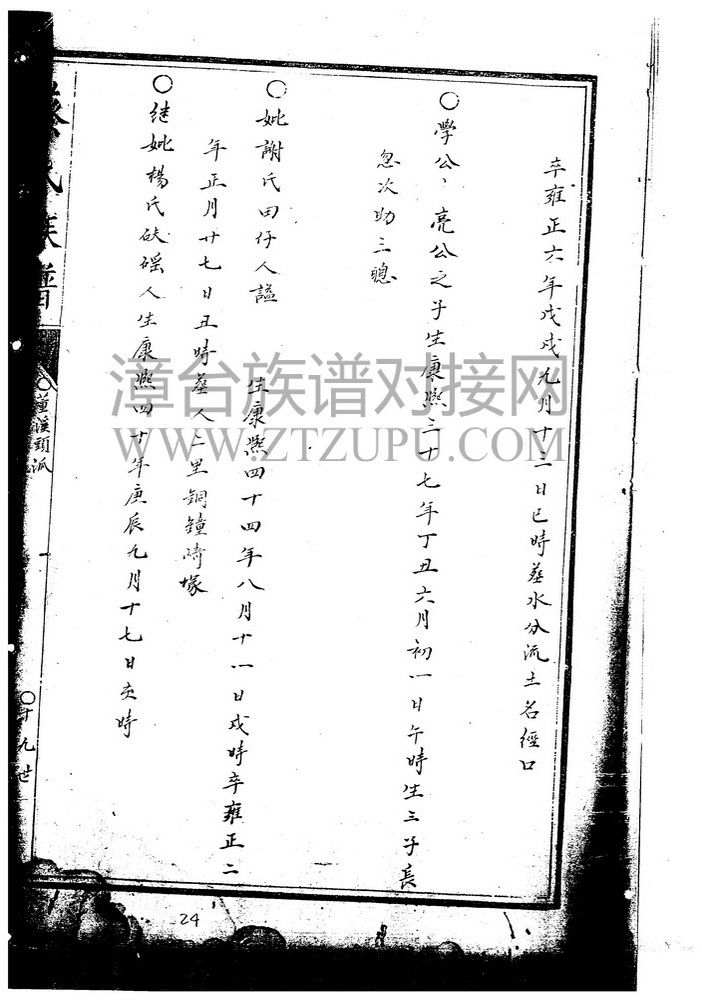 卒雍正六年戊戌九月十三日巳時葬水分流土名徑口
○學公、亮公之子生康熙三十七年丁丑六月初一日午時生三子長
忽次助三聰
○妣謝氏田仔人謚 生康熙四十四年八月十一日戌時卒雍正二
年正月廿七日丑時葬人二里銅鐘崎塚
○继妣楊氏 人生康熙四十年庚辰九月十七日亥時
氏族譜
○ 溪頭派
○十九世
24
漳台族谱对接网
WWW.ZTZUPU.COM